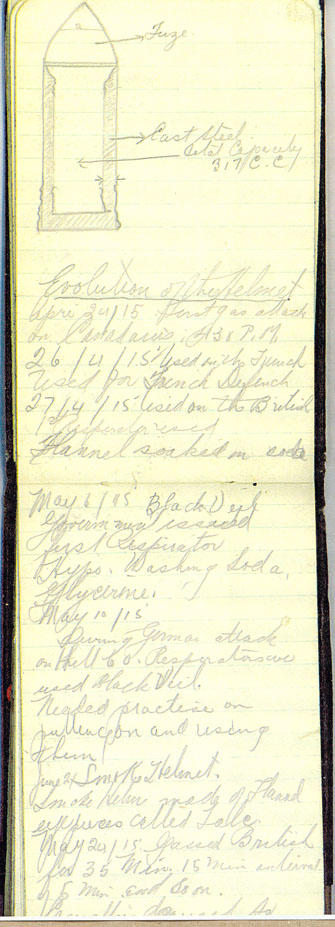 Fuze
Cast Steel
Total Capacity
317 C.C
Evolution of the Helmet
Apri 24/15 First gas attack
on Canadians 4.30 P.M
26/4/15 Used on the French
Used for French Defence
27/4/15 used on the British
1st Respirator used
Flannel soaked in soda
May 6/15 Black Veil
Government issued
first Respirator
Hypo. Washing Soda,
Glycerine.
May 10/15
During German attack
on Hill 60. Respirators were
used Black Veil.
Needed practise on
putting on and using
them
June 24 Smoke Helmet.
Smoke Helm made of Flannel
eyepieces called Talc
May 24/15 Gassed British
for 35 Min. 15 Min interval
5 Min and so on.